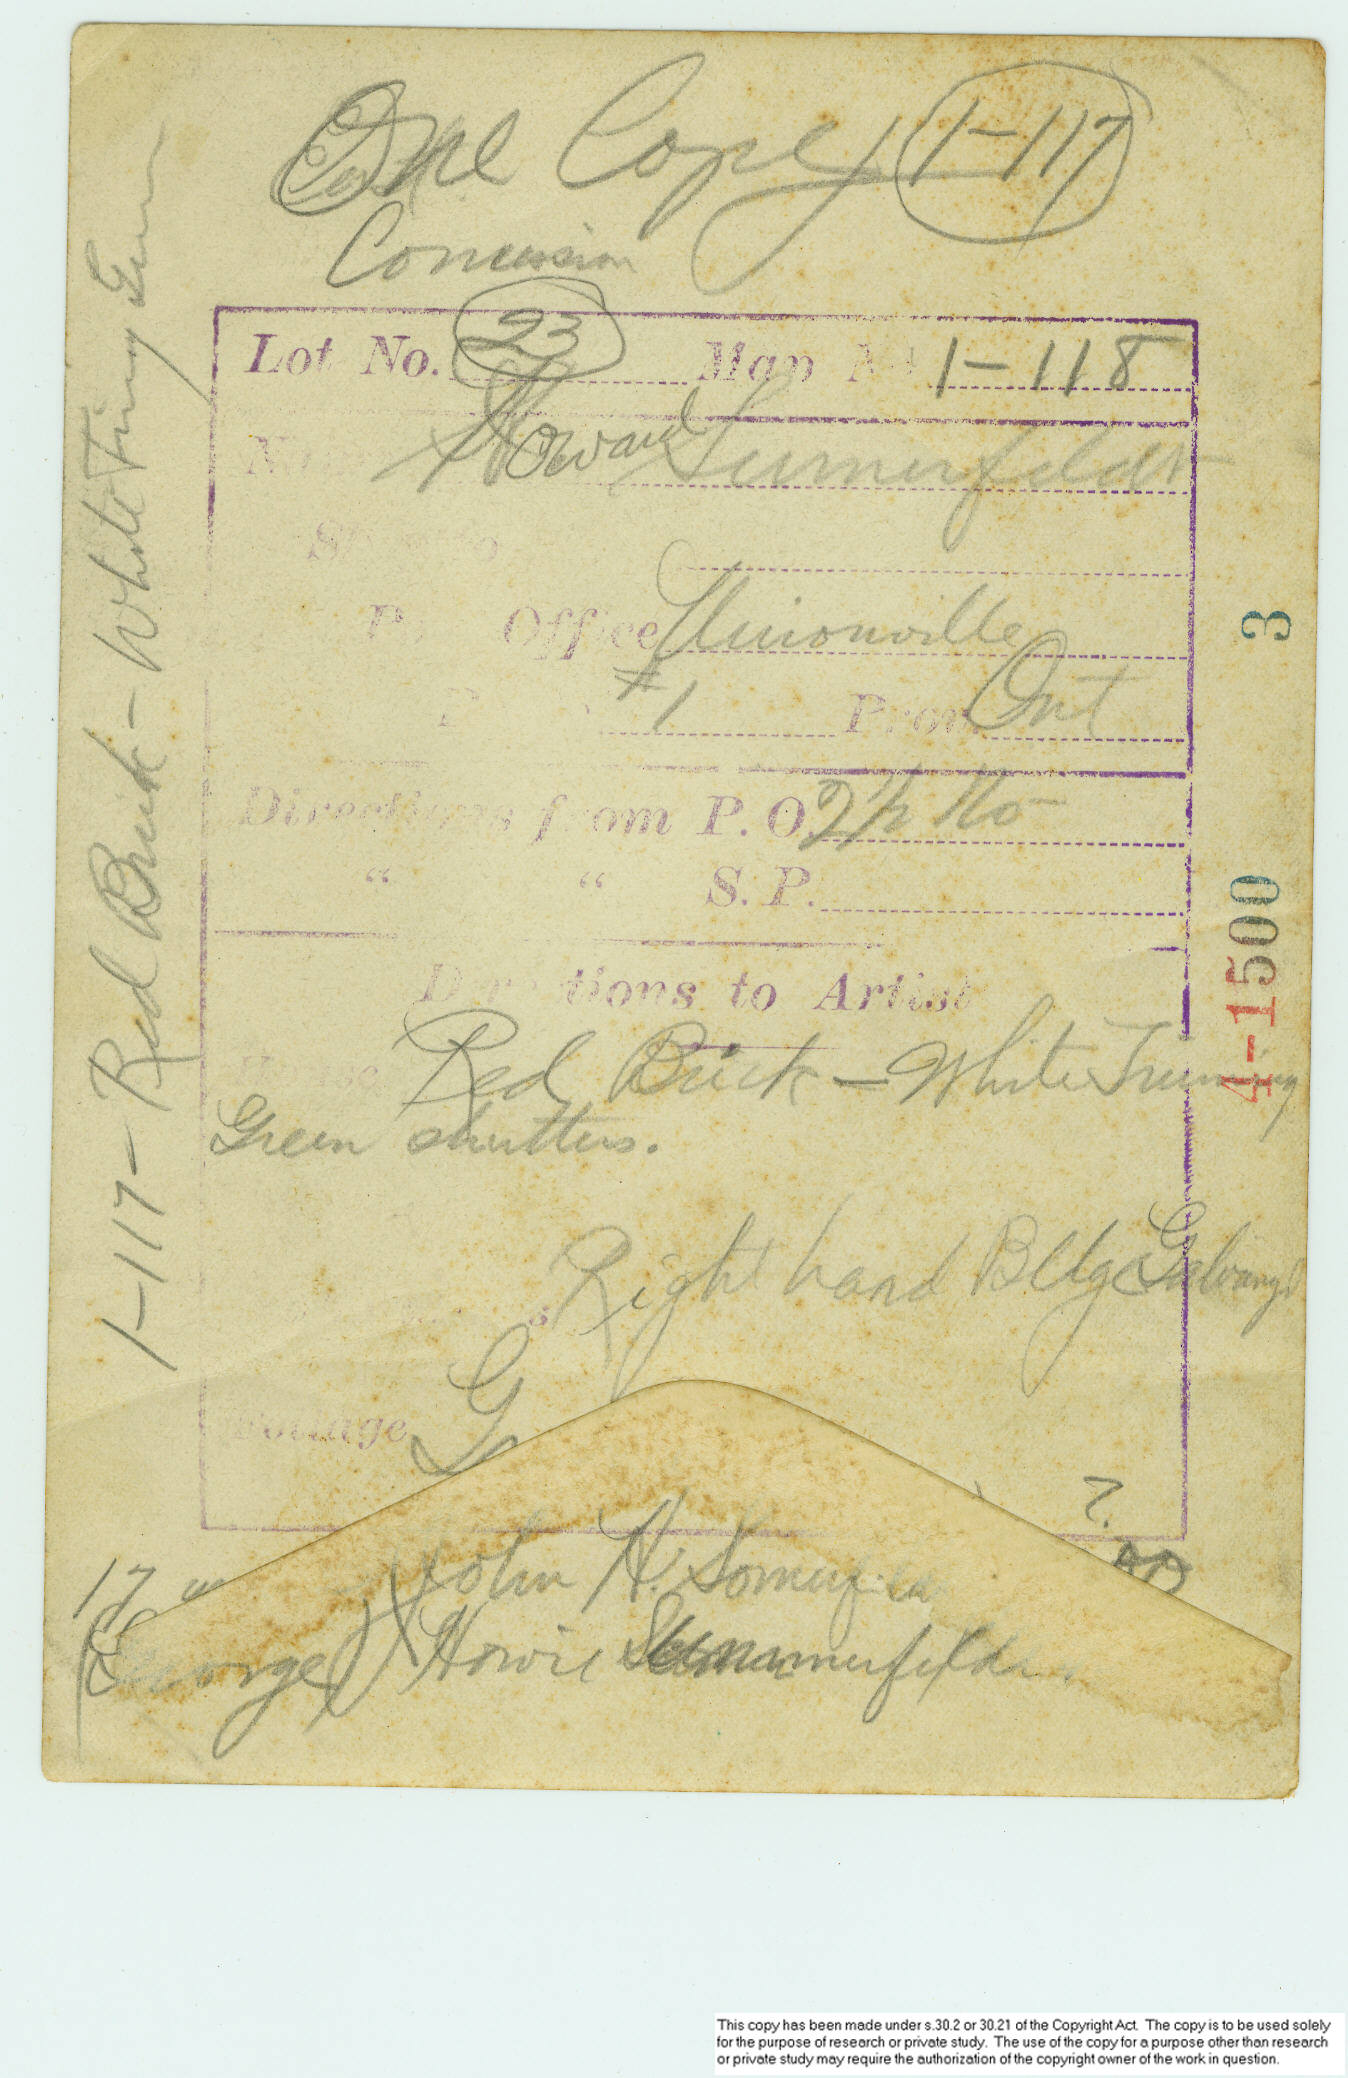 One Copy 1-117
Concession
Lot No. 23 Map No. 1-118
Howard Sumerfeldt
Post Office Unionville
#1 Prov. Ont
Directions from P. O. 2½ No
" " S. P.
Directions to Artist
House Red Brick - White Triming
Green shutters.
Right hand Bldg Galvanyd
Foliage G
?
17
John H. Somerfeldt
George Howie Summerfeldt
1-117 - Red Brick - White Trimg Green
3
4-1500
This copy has been made under s.30.2 or 30.21 of the Copyright Act. The copy is to be used solely
for the purpose of research or private study. The use of the copy for a purpose other than research
or private study may require the authorization of the copyright owner of the work in question.